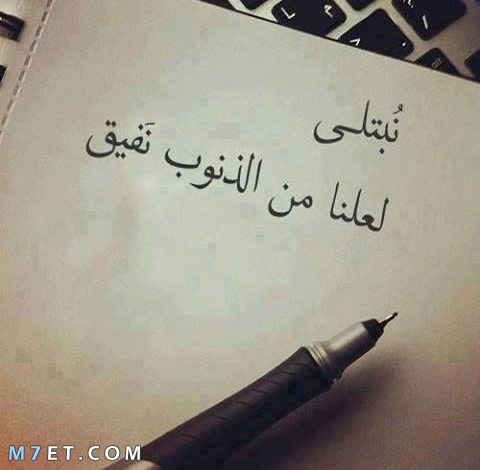 نُبتلى
لعلنا من الذنوب نَفيق
M7ET.COM